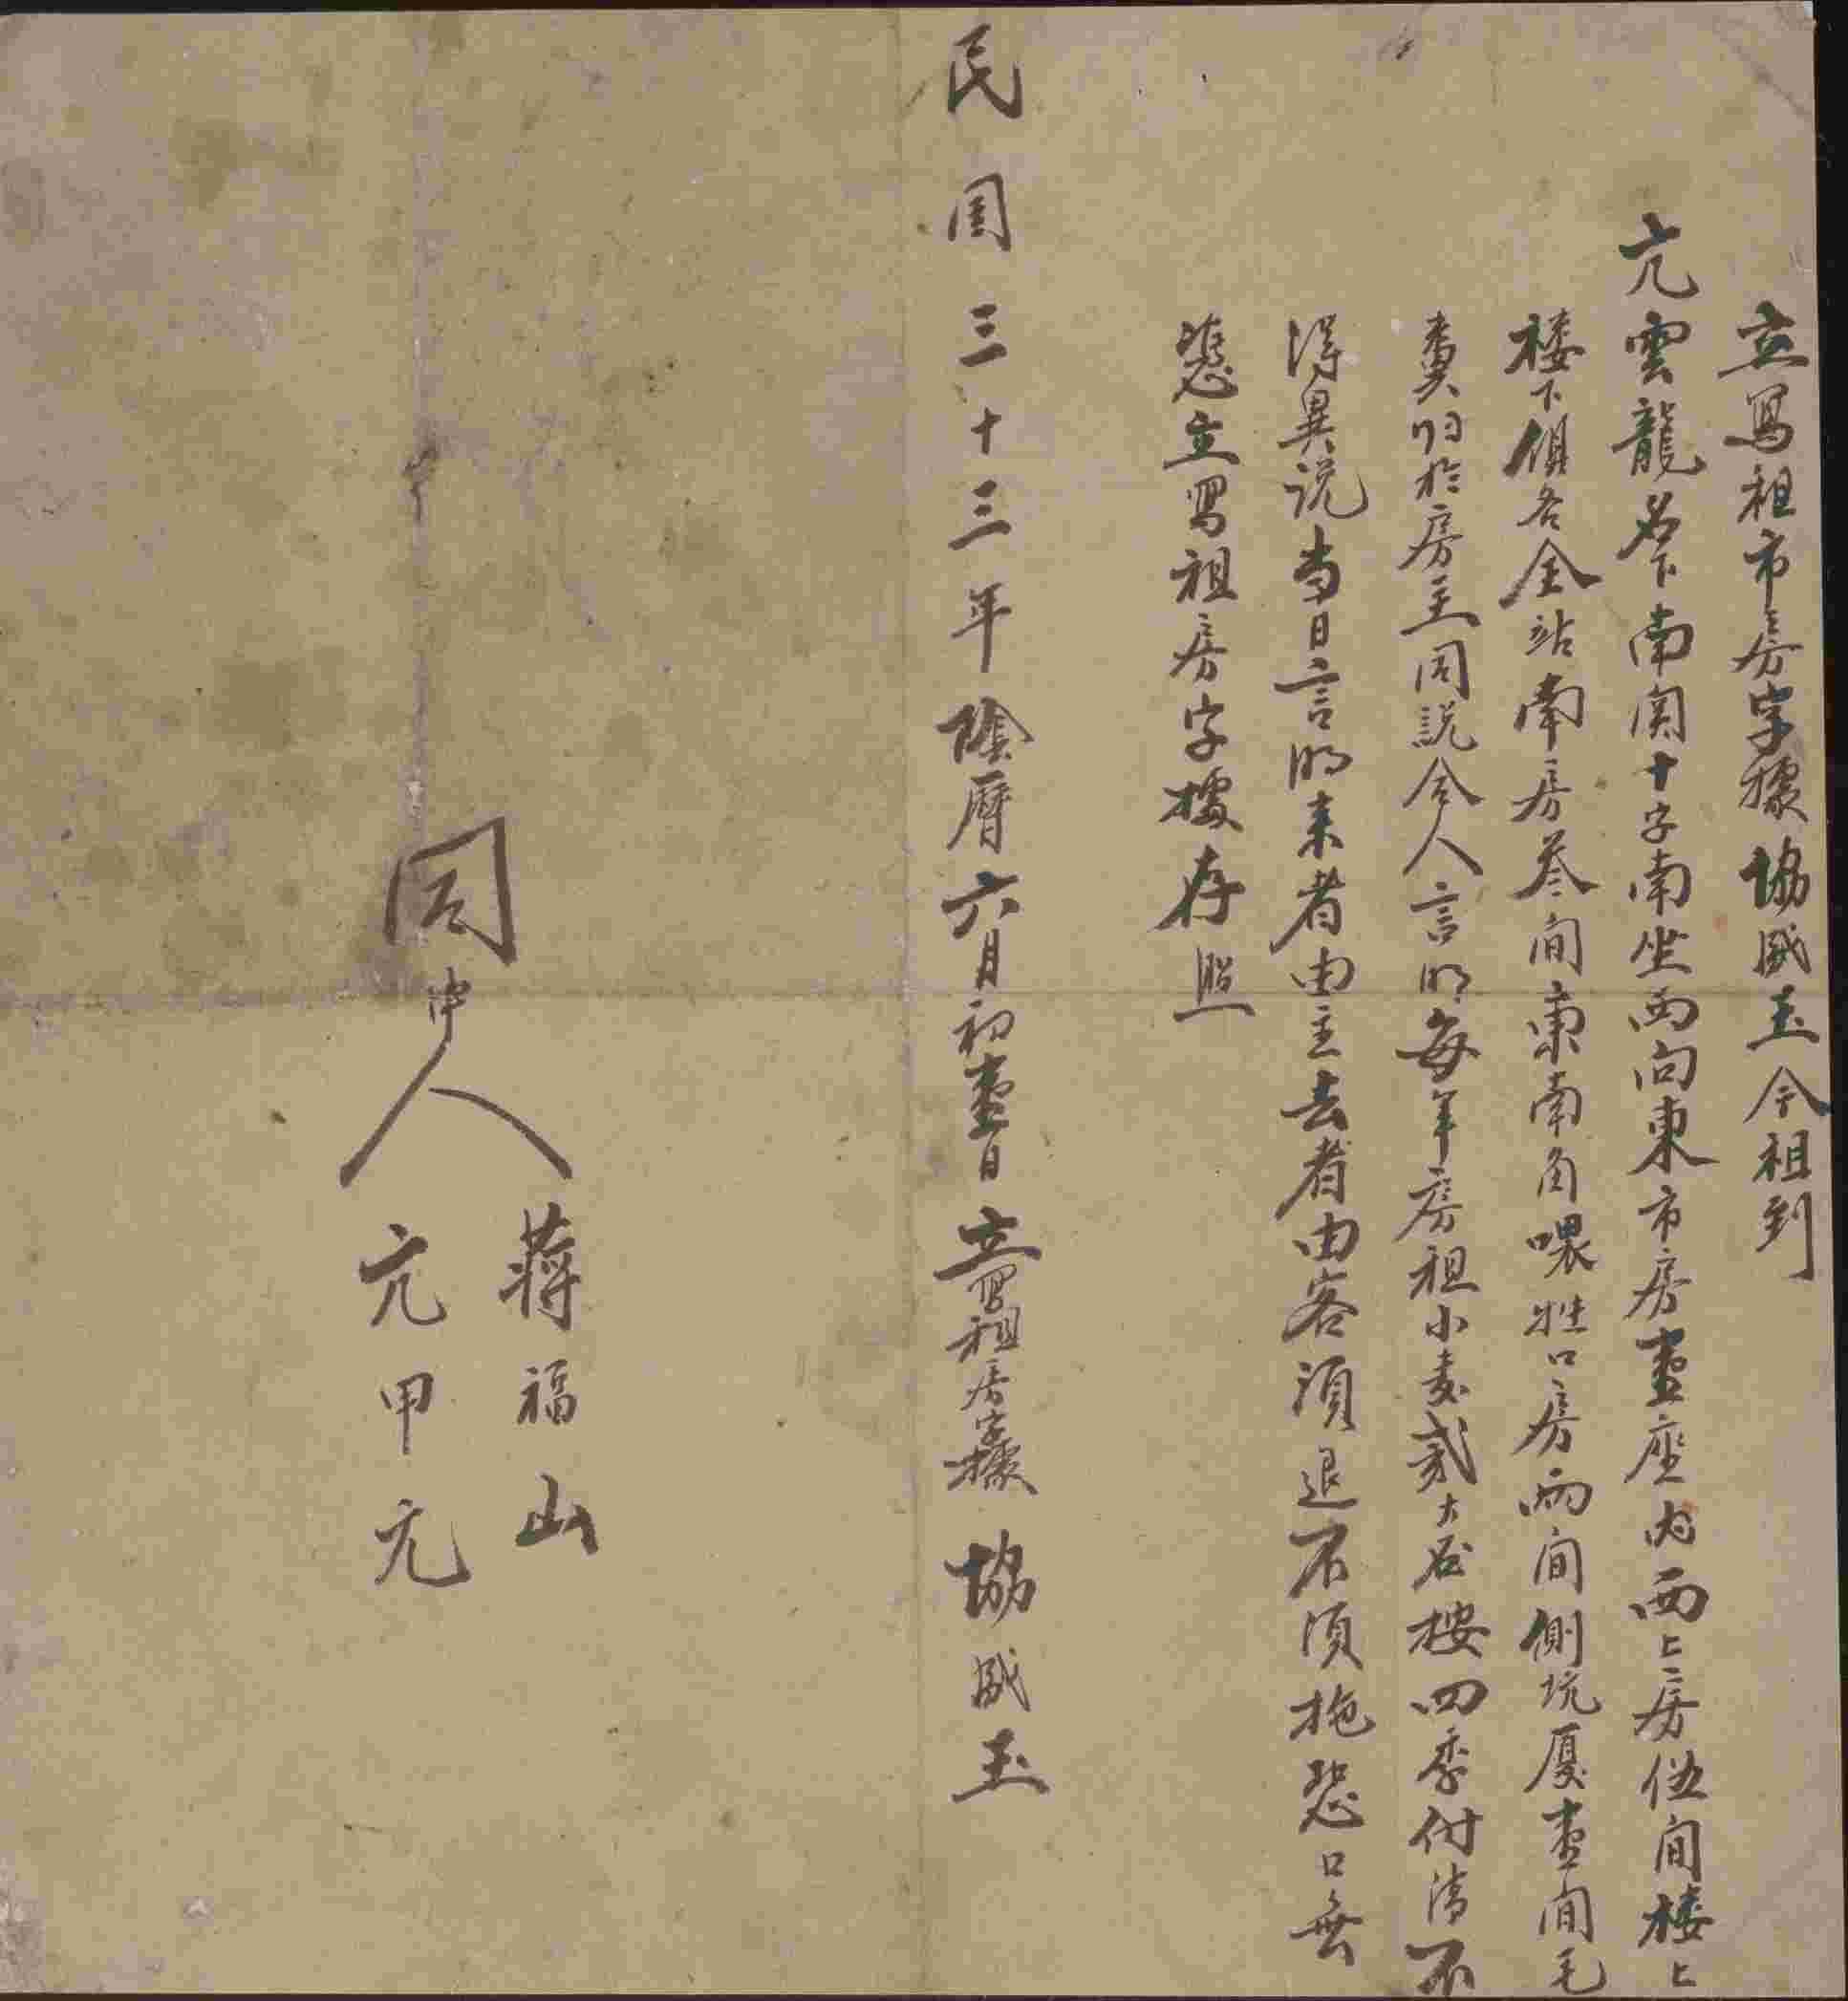 立寫租市房字據協盛玉今租到
亢雲龍名下南関十字南坐西向東市房壹座内西上房伍间楼上
楼下俱各全站南房叁间東南角喂牲口房两间側坑厦壹间毛
糞归於房主同説合人言明每年房租小麦貳大石按四季付清不
得異说当日言明来者由主去者由客須退不須拖恐口無
憑立写租房字據存照
民国三十三年陰曆六月初壹日立写租房字據協盛玉
同中人
蒋福山
亢甲元